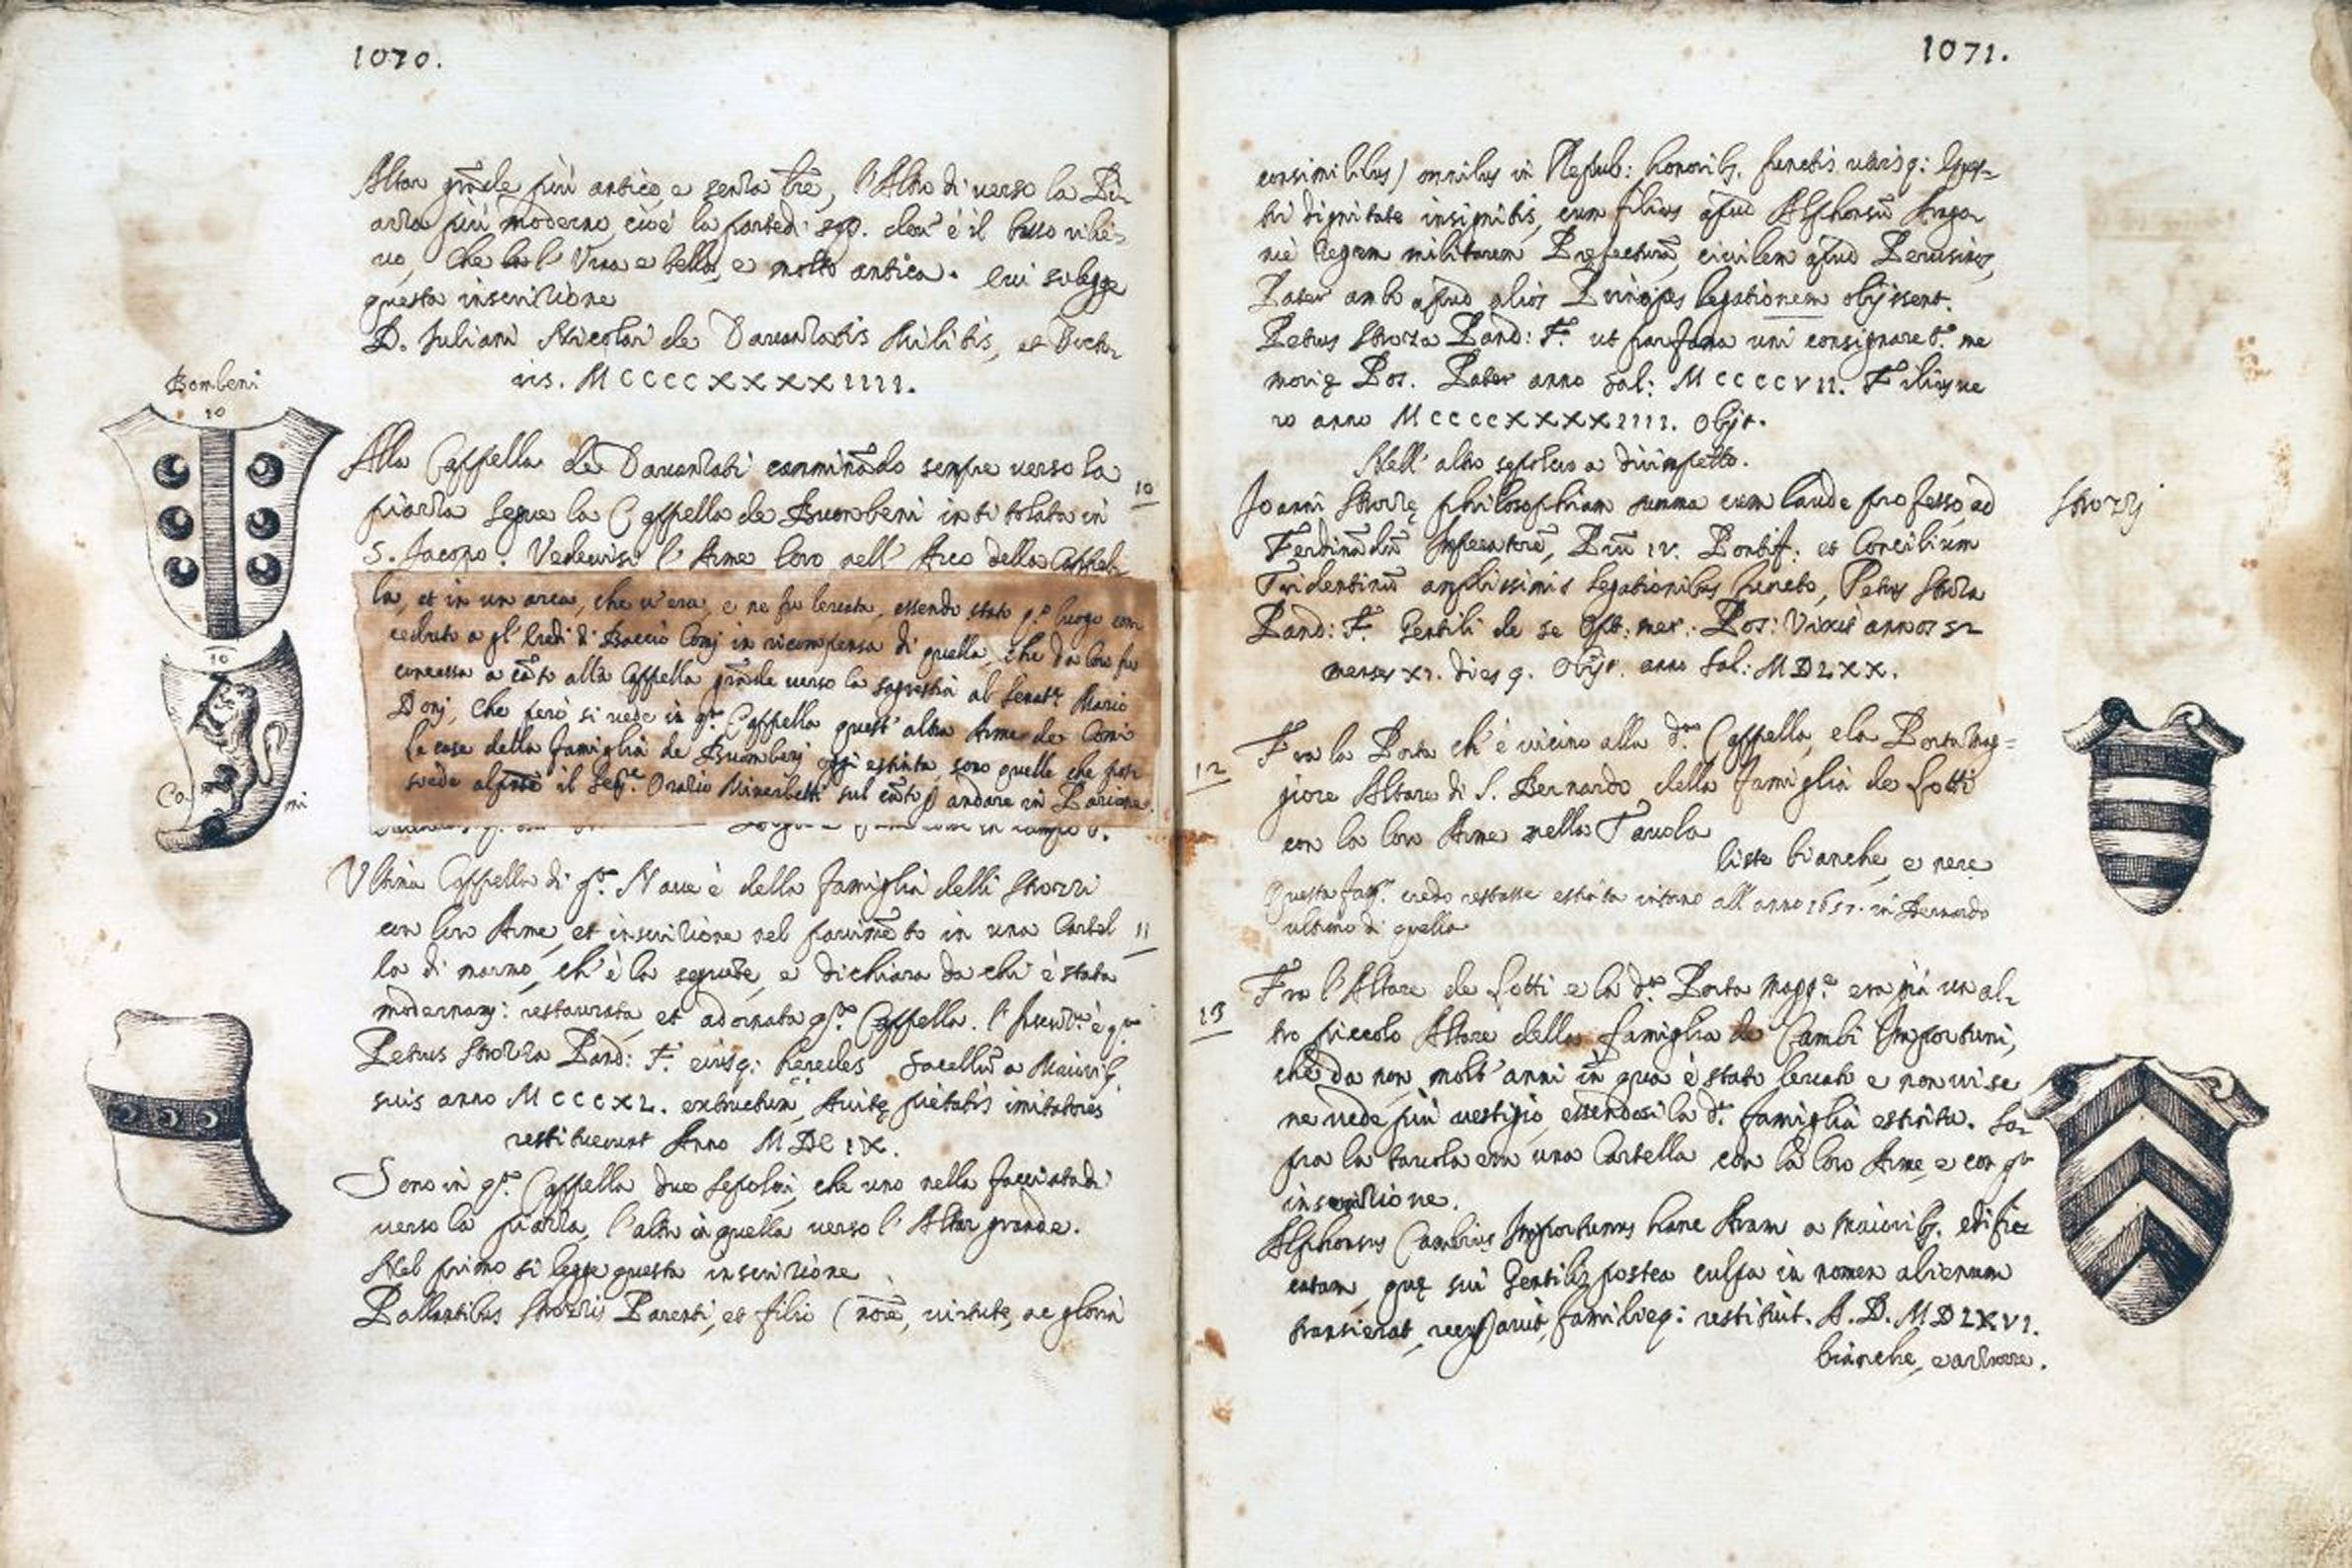 1070.
Altar grãde più antico, e senza lrẽ, l'Altro di verso la Pi-
azza più moderno, cioè la parte di sop. dov' è il
vo, che l'Urna e bella, e molto antica. Ivi si legge
questa inscrizione
D. Iuliani Nicolai de Davanzatis Militis, et Docto-
ris. MCCCCXXXXIIII.
Bombeni
10
Alla Cappella de Davanzati camminãdo sempre verso la
piazza segue la Cappella de Buombeni intitolata in
10
S. Jacopo. Vedevisi l'Arme loro nell' Arco della Cappel-
la, et in un arca, che v'era, e ne fu levata, essendo stato q.º luogo con
ceduto a gl' Eredi di Baccio Comj in ricompensa di quella, che da loro fu
concessa a cãto alla Cappella grãde verso la sagrestia al Senat.r Mario
Donj, Che però si vede in q.ta Cappella quest' altra Arme de Comi
le case della famiglia de Buombenj oggi estinta, sono quelle che pos-
siede al il Sen.re Orazio Minerbetti sul cãto p andare in Parione.
10
Co mi
Ultima Cappella di q.ta Nave è della famiglia delli Strozzi
con loro Arme, et inscrizione nel pavimẽto in una Cartel
11
la di marmo, ch' è la seguẽte, e dichiara da chi è stata
modernam: restaurata, et adornata q.ta Cappella. l'Inscriz.e è q.ta
Petrus Strozza Pand: F. eiusq: heredes Sacellũ a Maiorib.
suis anno MCCCXL. extructum, Avitę pietatis imitatores
restituerunt Anno MDCIX.
Sono in q.ta Cappella due sepolcri, che uno nella facciata di
verso la piazza, l'altro in quella verso l'Altar grande.
Nel primo si legge questa inscrizione
Pallantibus Strozzis Parenti, et filio (noïe, virtute, ac gloria
1071.
consimilibus) omnibus in Repub: honorib. functis utrisq: Eques-
tri dignitate insignitis, cum filius apud Alphonsũ Arago-
nię Regem militarem Pręfecturã, civilem apud Perusinos,
Pater amb apud alios Principes legationem obijssent.
Petrus Strozza Pand: F. ut par fama uni consignaret.r me
morię Pos. Pater anno sal: MCCCCVII. Filius ve
ro anno MCCCCXXXXIIII. Obijt.
Nell' altro sepolcro a dirimpetto.
Joanni Strozzę philosophiam summa cum laude professo, ad
Strozzj
Ferdinãdũ Imperatorẽ, Piũ IV. Pontif: et Concilium
Tridentinũ amplissimis legationibus functo, Petrus Strozza
Pand: F. Gentili de se Opt: mer: Pos: Vixit annos 52
menses XI. dies 9. Obijt. anno Sal: MDLXX.
12
Fra la Porta ch' è vicino alla d.ta Cappella, e la Porta Mag=
giore Altare di S. Bernardo della famiglia de Lotti
con la loro Arme nella Tavola
liste bianche, e nere
Questa fam.a credo restasse estinta intorno all' anno 1657. in Bernardo
ultimo di quella
13
Fra l'Altare de Lotti e la d.ta Porta Magg.e era già un al-
tro piccolo Altare della famiglia de Cambi Importuni,
che da non molt' anni in qua è stato levato e non vi se
ne vede più vestigio, essendosi la d.ta famiglia estinta. So-
pra la tavola era una Cartella con la loro Arme, e con q.ta
inscrizione.
Alphonsus Cambius Importunus hanc Aram a maiorib. edifi
catam, quę sui Gentilis postea culpa in nomen alienum
transierat, familięq: restituit. A.D. MDLXVI.
bianche, e azzurre.